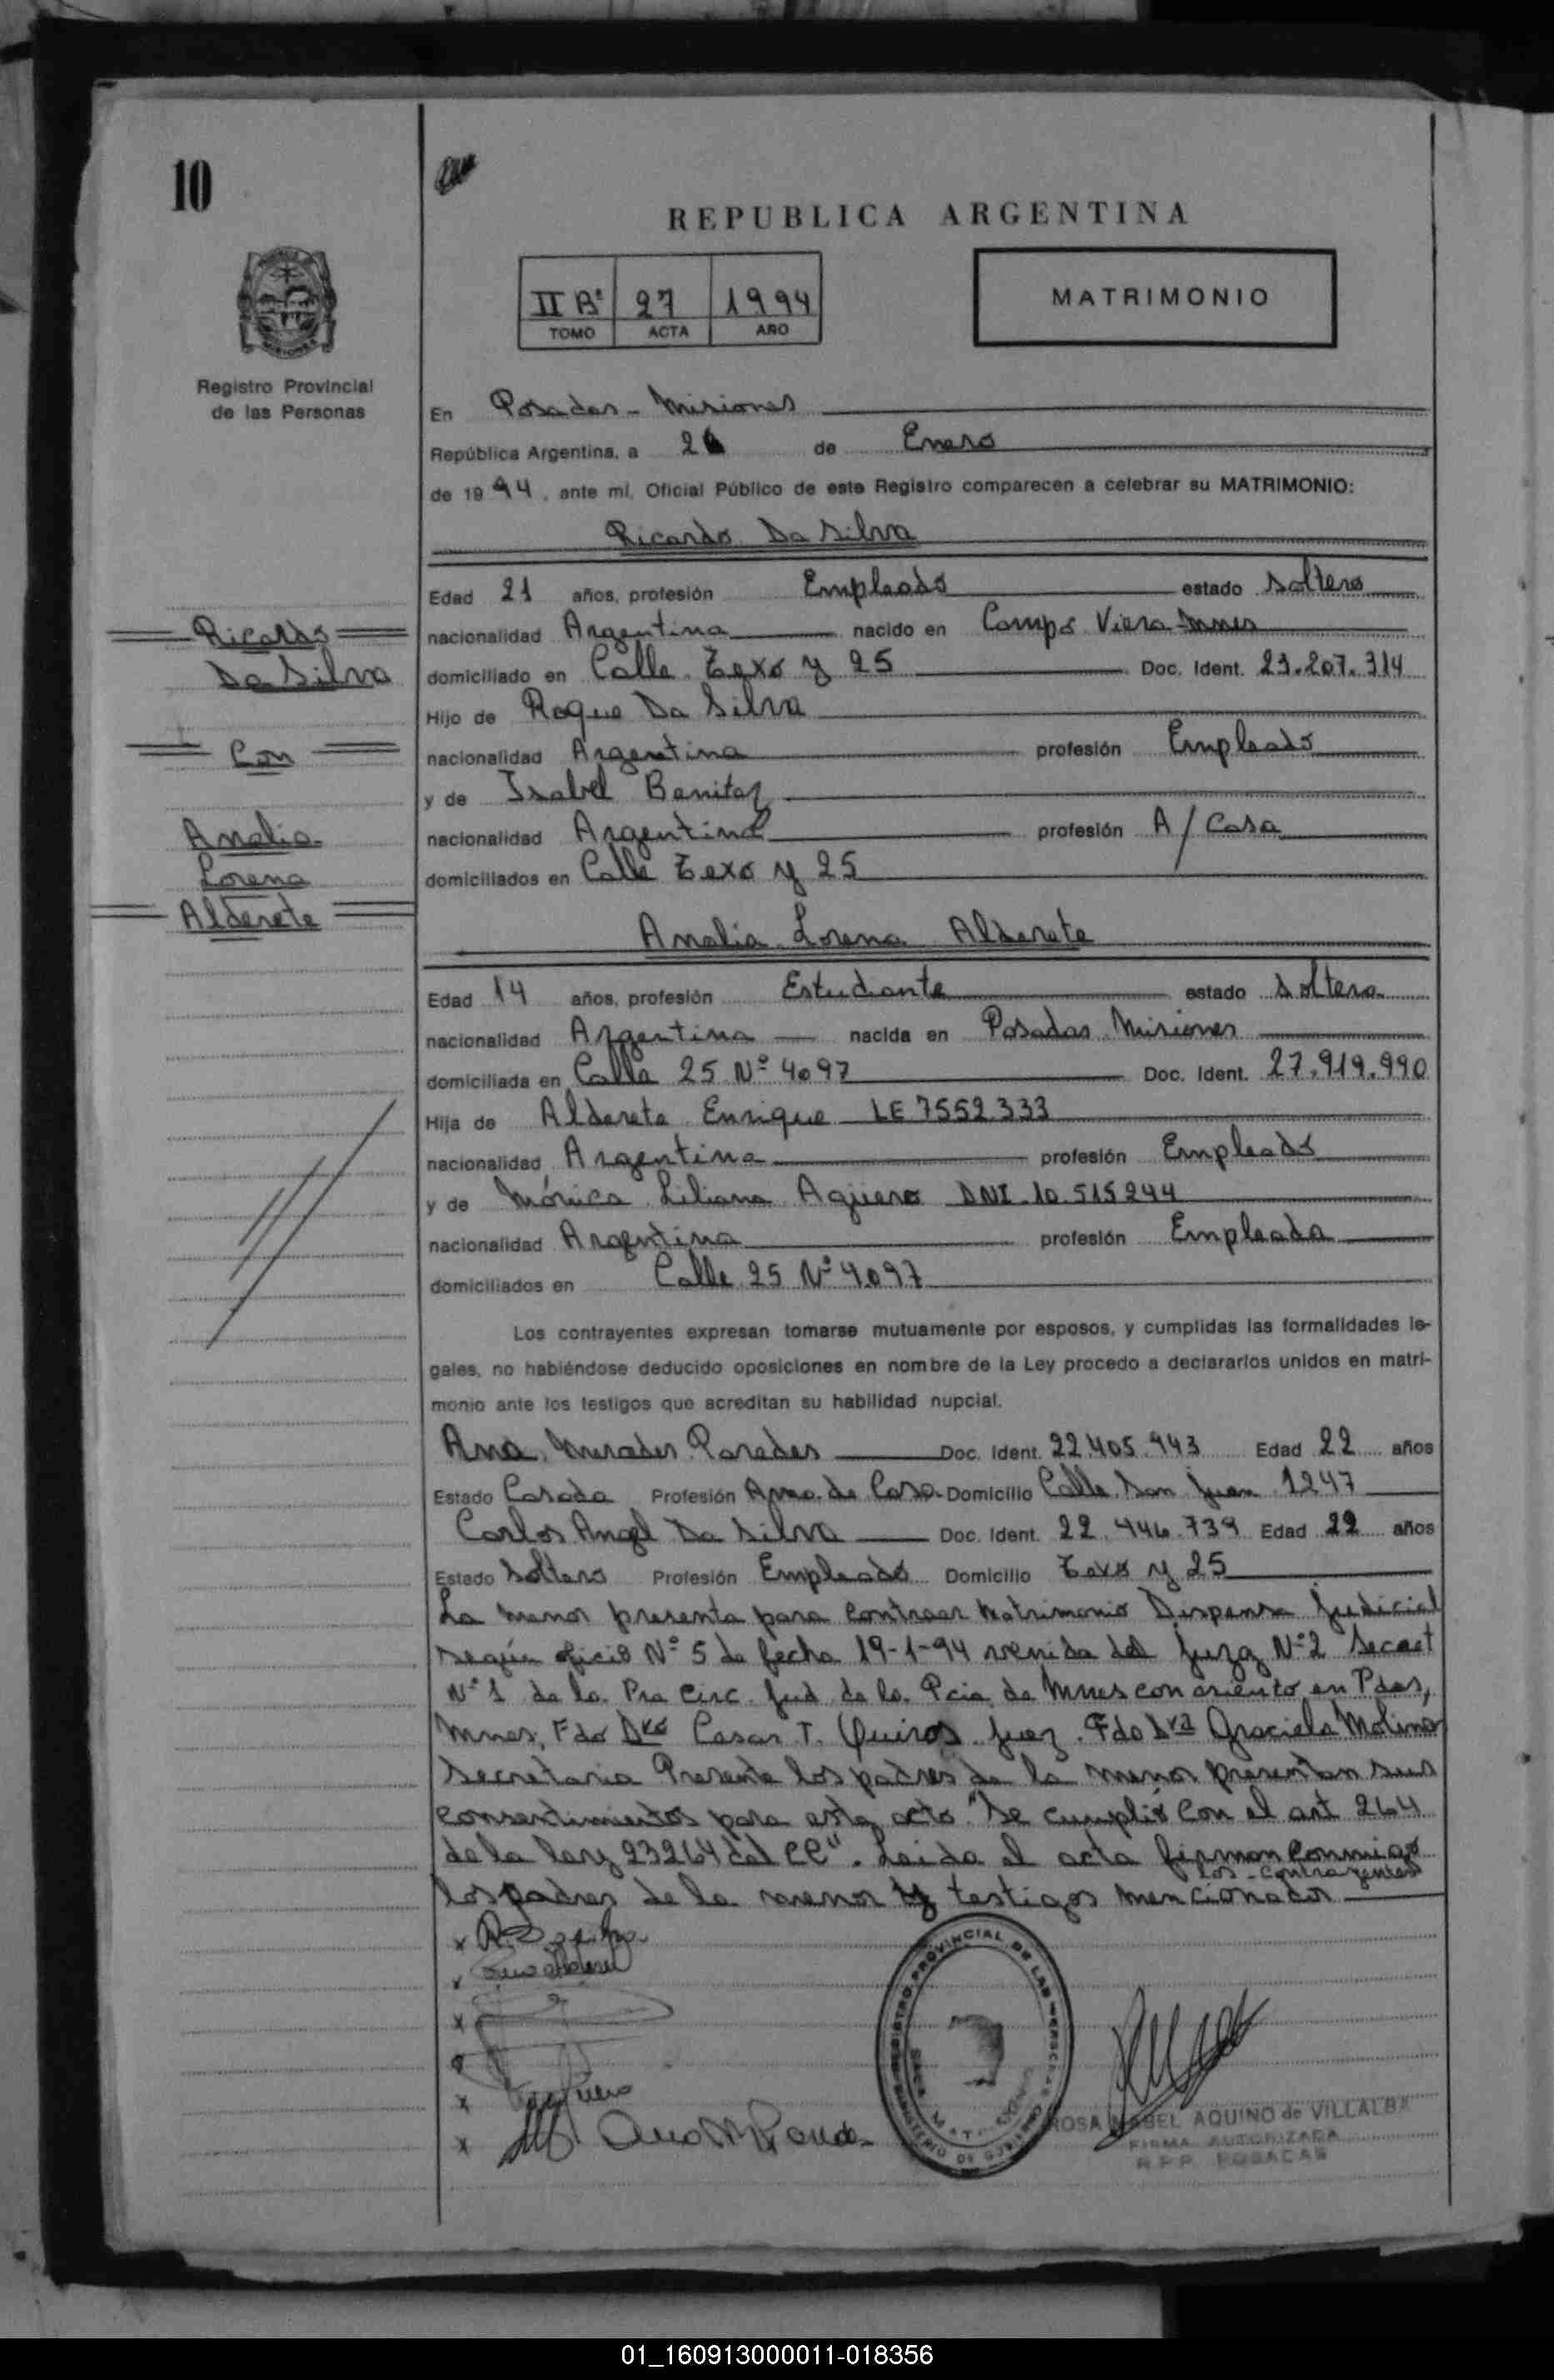 10
REPUBLICA ARGENTINA
II Bº 27 1994
TOMO ACTA AÑO
MATRIMONIO
Registro Provincial
de las Personas
En Posadas - Misiones
República Argentina, a 26 de Enero
de 1994, ante mí, Oficial Público de este Registro comparecen a celebrar su MATRIMONIO:
Ricardo Da Silva
Edad 21 años, profesión Empleado estado Soltero
Ricardo
Da Silva
Con
Analia
Lorena
Alderete
nacionalidad Argentina nacido en Campo Viera Mnes
domiciliado en Calle Texo y 25 Doc. Ident. 23.207.314
Hijo de Roque Da Silva
nacionalidad Argentina profesión Empleado
y de Isabel Benitez
nacionalidad Argentina profesión A/Casa
domiciliados en Calle Texo y 25
Analia Lorena Alderete
Edad 14 años, profesión Estudiante estado Soltera
nacionalidad Argentina nacida en Posadas Misiones
domiciliada en Calle 25 Nº 4097 Doc. Ident. 27.919.990
Hija de Alderete Enrique LE 7552.333
nacionalidad Argentina profesión Empleado
y de Mónica Liliana Aguero DNI 10.515244
nacionalidad Argentina profesión Empleada
domiciliados en Calle 25 Nº 4097
Los contrayentes expresan tomarse mutuamente por esposos, y cumplidas las formalidades le-
gales, no habiéndose deducido oposiciones en nombre de la Ley procedo a declararlos unidos en matri-
monio ante los testigos que acreditan su habilidad nupcial.
Ana Mercedes Paredes Doc. Ident. 22.405.943 Edad 22 años
Estado Casada Profesión Ama de Casa Domicilio Calle San Juan 1247
Carlos Angel Da Silva Doc. Ident. 22.446.739 Edad 22 años
Estado Soltero Profesión Empleado Domicilio Texo y 25
La menor presenta para contraer Matrimonio Dispensa Judicial
según oficio Nº 5 de fecha 19-1-94 venida del Juzg Nº 2 Secret
Nº 1 de la Pra Circ. Jud de la Pcia de Mnes con asiento en Pdas,
Mnes, Fdo Cesar T. Quiros Juez. Fdo Dra Graciela Molina
Secretaria Presente los padres de la menor presentan sus
consentimientos para este acto "Se cumplió con el art 264
de la ley 23264 del CC". Leida el acta firman conmigo
los contrayentes
los padres de la menor y testigos mencionados
REGISTRO PROVINCIAL DE LAS PERSONAS
ROSA MABEL AQUINO de VILLALBA
FIRMA AUTORIZADA
R.P.P. POSADAS
01_160913000011-018356